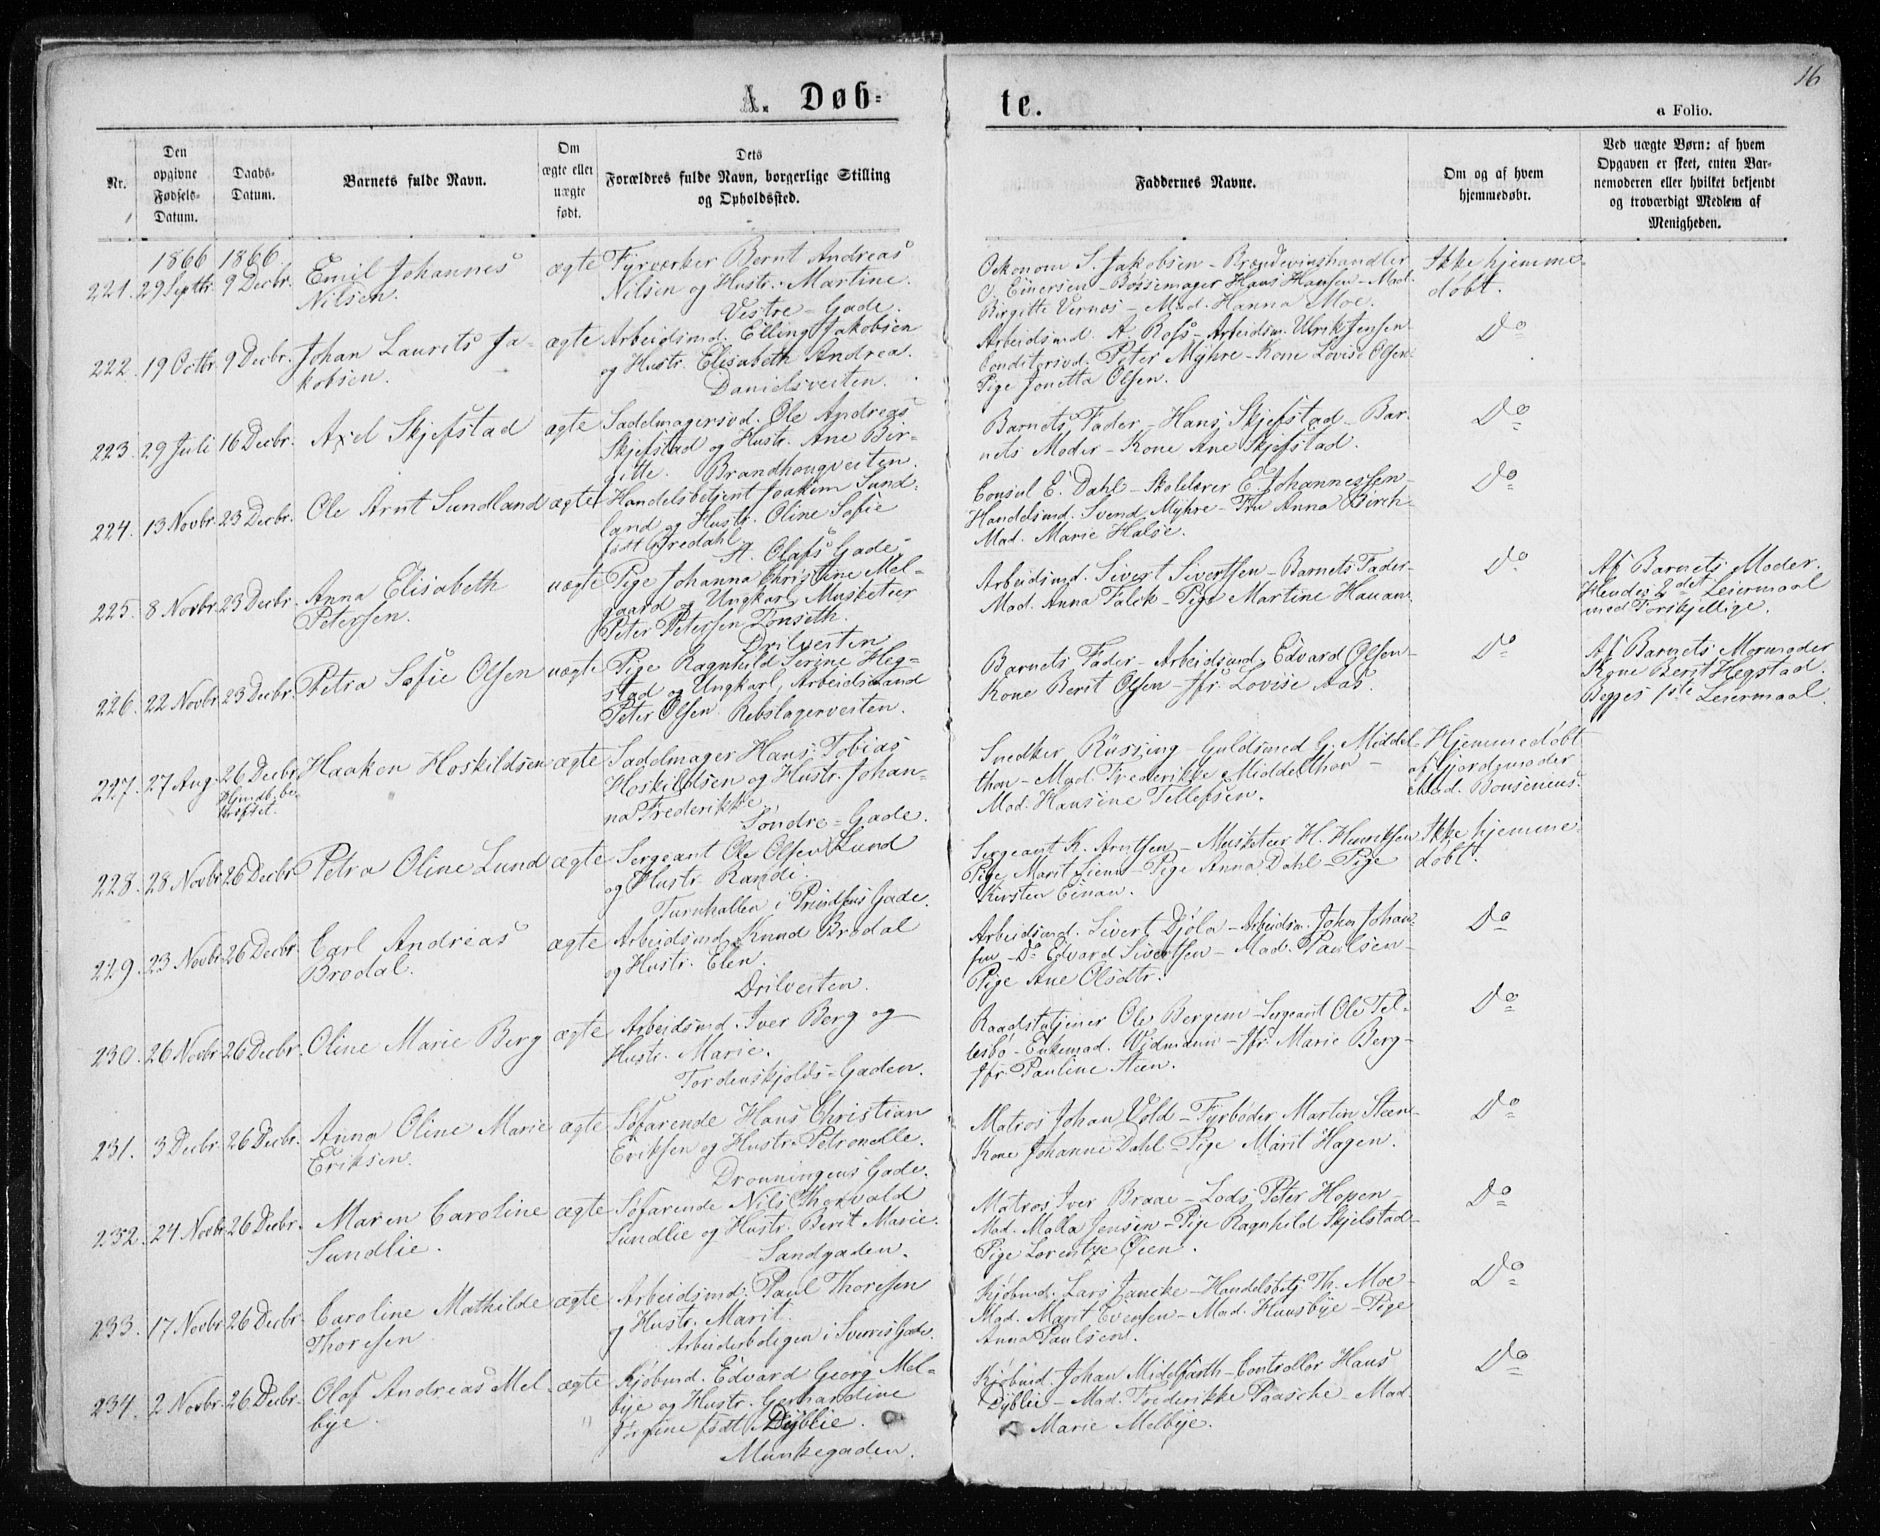 16
A. Døb=
te.
a Folio.
Nr.
Den
opgivne
Fødsels-
Datum.
Daabs-
Datum.
Barnets fulde Navn.
Om
ægte eller
uægte
født.
Dets
Forældres fulde Navn, borgerlige Stilling
og Opholdssted.
Faddernes Navne.
Om og af hvem
hjemmedøbt.
Ved uægte Børn: af hvem
Opgaven er skeet, enten Bar-
nemoderen eller hvilket bekjendt
og troværdigt Medlem af
Menigheden.
1866 1866
221. 29 Septbr. 9 Decbr. Emil Johannes
Nilsen.
ægte
Fyrværker Bernt Andreas
Nilsen og Hustr. Martine.
Vestre=Gade.
Oekonom S. Jakobsen – Brændevinshandler
O. Einersen – Bössemager Hans Hansen – Mad.
Birgitte Vernos – Mad. Hanna Moe.
Ikke hjemme=
døbt.
222. 19 Octbr. 9 Decbr. Johan Laurits Ja-
kobsen.
ægte
Arbeidsmd. Elling Jakobsen
og Hustr. Elisabeth Andrea.
Danielsveiten.
Arbeidsmd. A. Ross – Arbeidsm. Ulrik Jensen
Conditorsvd. Peter Myhre – Kone Lovise Olsen
Pige Jonetta Olsen.
Do
223. 29 Juli 16 Decbr. Axel Skjefstad
ægte
Sadelmagersvd. Ole Andreas
Skjefstad og Hustr. Ane Bir-
gitte. Brandhougveiten.
Barnets Fader – Hans Skjefstad – Bar-
nets Moder – Kone Ane Skjefstad.
Do
224. 13 Novbr. 23 Decbr. Ole Arnt Sundland
ægte
Handelsbetjent Joakim Sund-
land og Hustr. Oline Sofie
født Bredahl
St. Olafs Gade.
Consul E. Dahl – Skolelærer E. Johannessen –
Handelsmd. Svend Myhre – Fru Anna Birch –
Mad. Marie Halse.
Do
225. 8 Novbr. 23 Decbr. Anna Elisabeth
Petersen.
uægte
Pige Johanna Christine Mel-
gaard og Ungkarl, Musketeer
Peter Petersen Tonseth.
Drilveiten
Arbeidsmd. Sivert Sivertsen – Barnets Fader –
Mad. Anna Falck – Pige Martine Hauan.
Do
Af Barnets Moder.
Hendes 2det Leiermaal
med Forskjellige.
226. 22 Novbr. 23 Decbr. Petra Sofie Olsen
uægte
Pige Ragnhild Serine Heg-
stad og Ungkarl, Arbeidsmand
Peter Olsen. Rebslagerveiten.
Barnets Fader – Arbeidsmd. Edvard Olsen –
Kone Berit Olsen – Jfr. Lovise Aas.
Do
Af Barnets Mormoder
Kone Berit Hegstad.
Begges 1ste Leiermaal.
227. 27 Aug. 26 Decbr. Haaken Hoskildsen
ægte
Sadelmager Hans Tobias
Hoskildsen og Hustr. Johan-
na Frederikke
Søndre=Gade.
Snedker Rüssing – Guldsmed G. Middel-
thon – Mad. Frederikke Middelthon –
Mad. Hansine Tellefsen.
Hjemmedøbt
af Jordemoder
Mad. Bonsenius.
228. 28 Novbr. 26 Decbr. Petra Oline Lund
ægte
Sergeant Ole Olsen Lund
og Hustr. Randi.
Turnhallen i Prindsens Gade.
Sergeant K. Arntsen – Musketeer H. Henriksen
Pige Marit Lien – Pige Anna Dahl – Pige
Kirsten Einan.
Ikke hjemme-
døbt.
229. 23 Novbr. 26 Decbr. Carl Andreas
Brodal.
ægte
Arbeidsmd. Knud Brodal
og Hustr. Elen.
Drilveiten.
Arbeidsmd. Sivert Djøla – Arbeidsm. Johan Johan-
sen – Do Edvard Sivertsen – Mad. Paulsen –
Pige Ane Olsdtr.
Do
230. 26 Novbr. 26 Decbr. Oline Marie Berg
ægte
Arbeidsmd. Iver Berg og
Hustr. Marie.
Tordenskjolds=Gaden.
Raadstutjener Ole Bergem – Sergeant Ole Tel-
lesbø – Enkemad. Widmann – Jfr. Marie Berg –
Jfr. Pauline Steen.
Do
231. 3 Decbr. 26 Decbr. Anna Oline Marie
Eriksen.
ægte
Søfarende Hans Christian
Eriksen og Hustr. Petronelle.
Dronningens Gade.
Matros Johan Vold – Fyrbøder Martin Steen –
Kone Johanne Dahl – Pige Marit Hagen.
Do
232. 24 Novbr. 26 Decbr. Maren Caroline
Sundlie.
ægte
Søfarende Nils Thorvald
Sundlie og Hustr. Berit Marie.
Sandgaden.
Matros Iver Braae – Lods Peter Hopen –
Mad. Malla Jensen – Pige Ragnhild Skjelstad –
Pige Lorentze Øien.
Do
233. 17 Novbr. 26 Decbr. Caroline Mathilde
Thoresen
ægte
Arbeidsmd. Paul Thoresen
og Hustr. Marit.
Arbeiderboligen i Sverres Gade.
Kjøbmd. Lars Jancke – Handelsbetj. Th. Moe –
Mad. Marit Evensen – Mad. Huusbye – Pige
Anna Paulsen.
Do
234. 2 Novbr. 26 Decbr. Olaf Andreas Mel-
bye.
ægte
Kjøbmd. Edvard Georg Mel-
bye og Hustr. Gerhardine
Jørgine født Dyblie.
Munkegaden.
Kjøbmd. Johan Middelfarth – Controllør Hans
Dyblie – Mad. Frederikke Paasche – Mad.
Marie Melbye.
Do